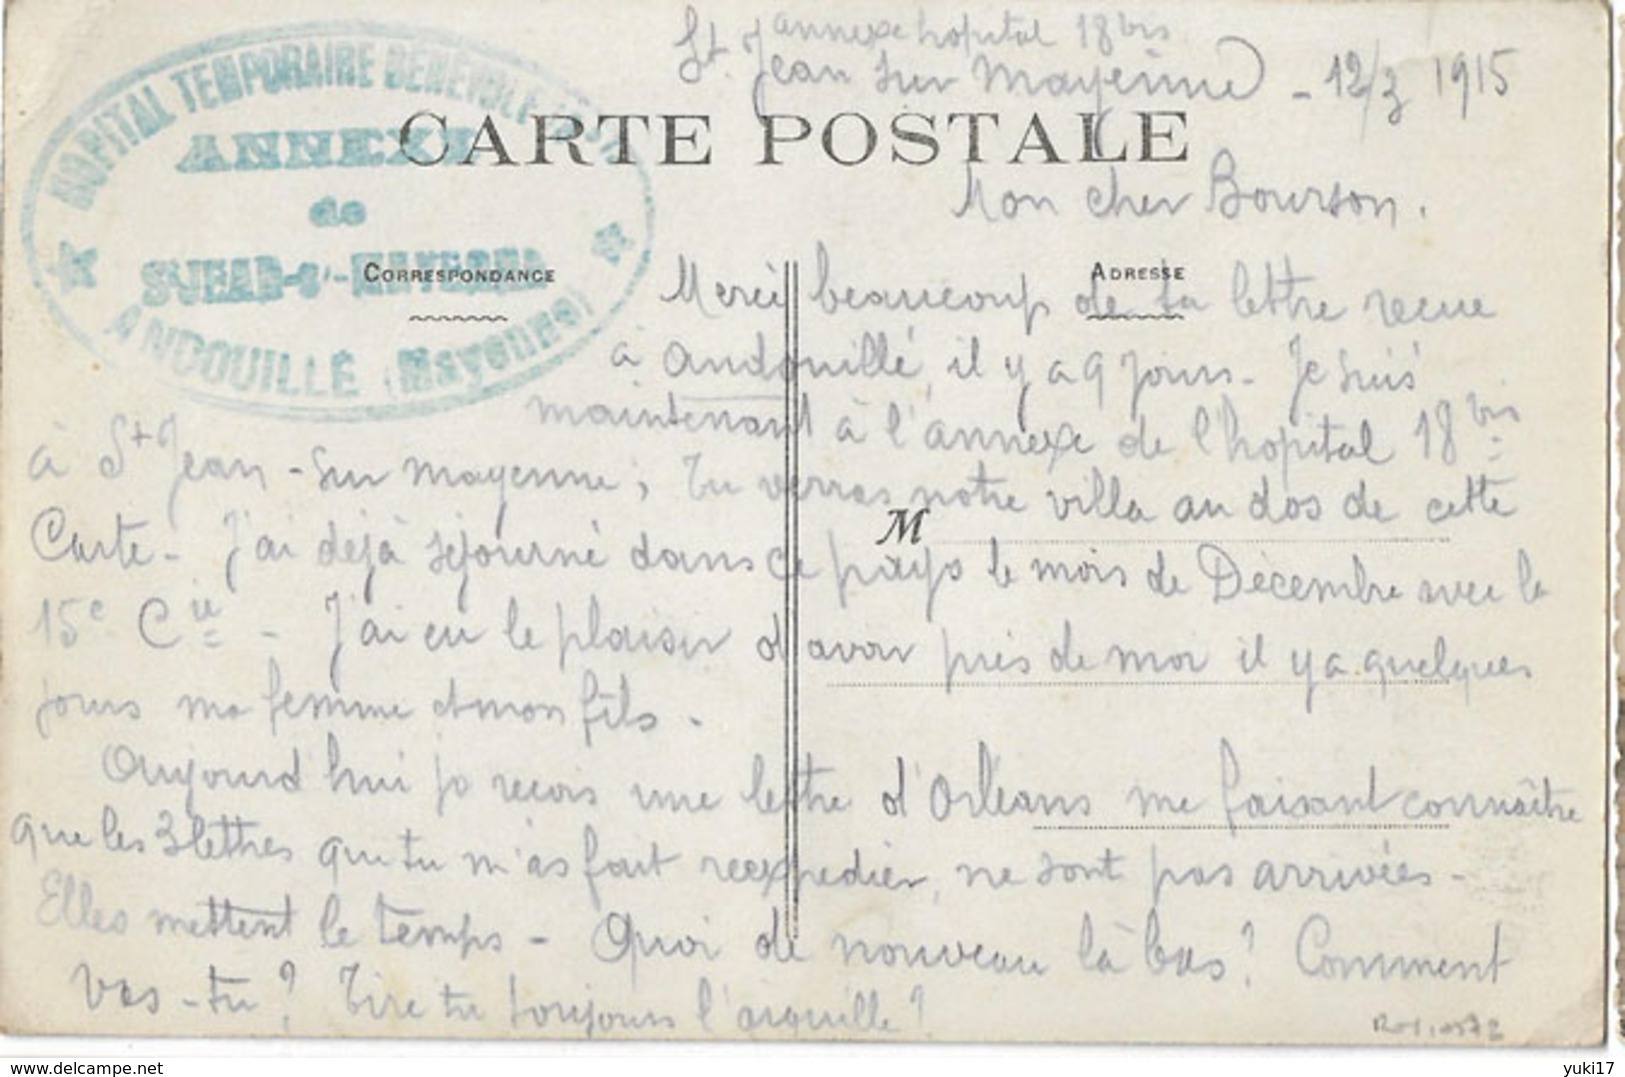 annexe hopital 18 bis
St. Jean sur Mayenne - 12/3 1915
HOPITAL TEMPORAIRE BENEVOLE
ANNEXE
de
St JEAN-s/-MAYENNE
ANDOUILLÉ (Mayenne)
CARTE POSTALE
CORRESPONDANCE
ADRESSE
M
Mon cher Bourson.
Merci beaucoup de ta lettre recue
à Andouillé, il y a 9 jours - Je suis
maintenant à l'annexe de l'hopital 18 bis
à St Jean - sur mayenne, Tu verras notre villa au dos de cette
Carte - J'ai déjà séjourné dans ce pays le mois de Décembre avec la
15e Cie - J'ai eu le plaisir d'avoir près de moi il y a quelques
jours ma femme et mon fils -
Aujourd'hui je recois une lettre d'Orléans me faisant connaître
que les 3 lettres que tu m'as fait reexpedier, ne sont pas arrivées -
Elles mettent le temps - Quoi de nouveau là bas ? Comment
vas-tu ? Tire tu toujours l'aiguille ?
delcampe.net
yuki17